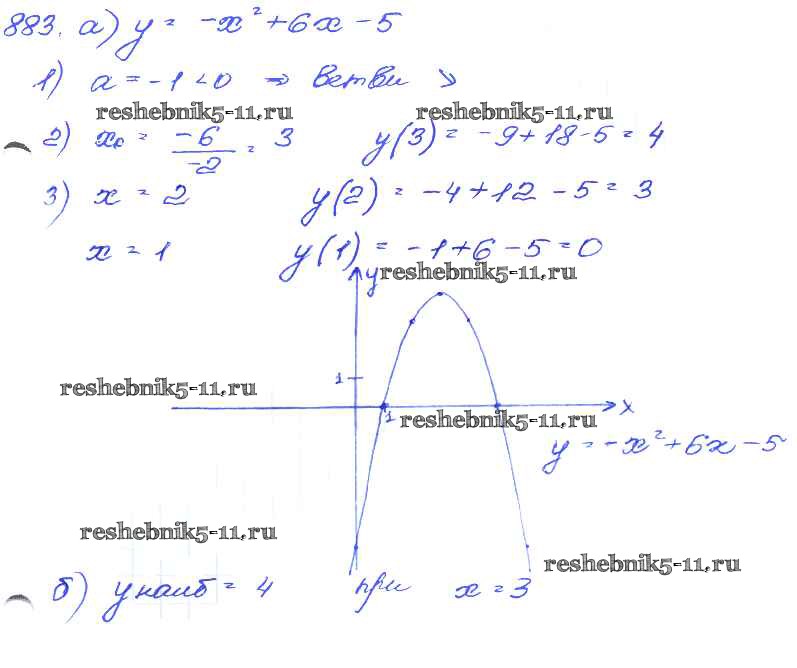 883. а) y = -x² + 6x - 5
1) a = -1 < 0 ⇒ ветви ↘
reshebnik5-11.ru reshebnik5-11.ru
2) x₀ = -6/-2 = 3 y(3) = -9 + 18 - 5 = 4
3) x = 2 y(2) = -4 + 12 - 5 = 3
x = 1 y(1) = -1 + 6 - 5 = 0
y reshebnik5-11.ru
1
reshebnik5-11.ru
1 reshebnik5-11.ru x
y = -x² + 6x - 5
reshebnik5-11.ru
reshebnik5-11.ru
б) y наиб = 4 при x = 3